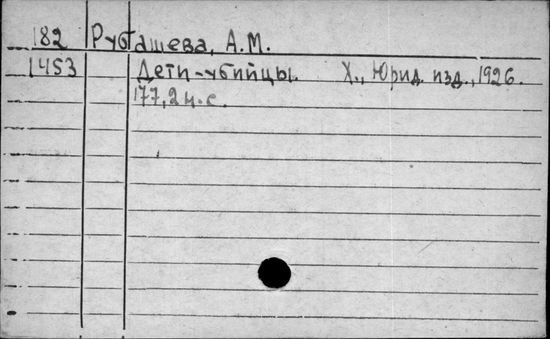 182 Рубашева, А.М.
1453 Дети-убийцы. Х., Юрид. изд., 1926.
177, 2 н. с.